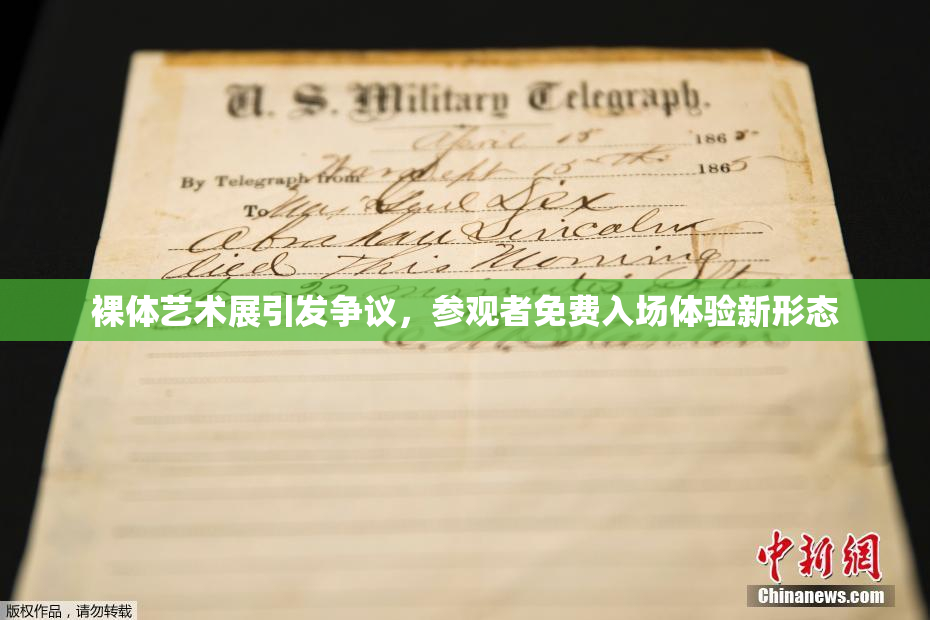 U. S. Military Telegraph.
April 15 1865
By Telegraph from War Dept 15th 1865
To Maj Genl Dix
Abraham Lincoln
died This Morning
22 minutes after
裸体艺术展引发争议，参观者免费入场体验新形态
E. M. Stanton
中新网
Chinanews.com
版权作品，请勿转载